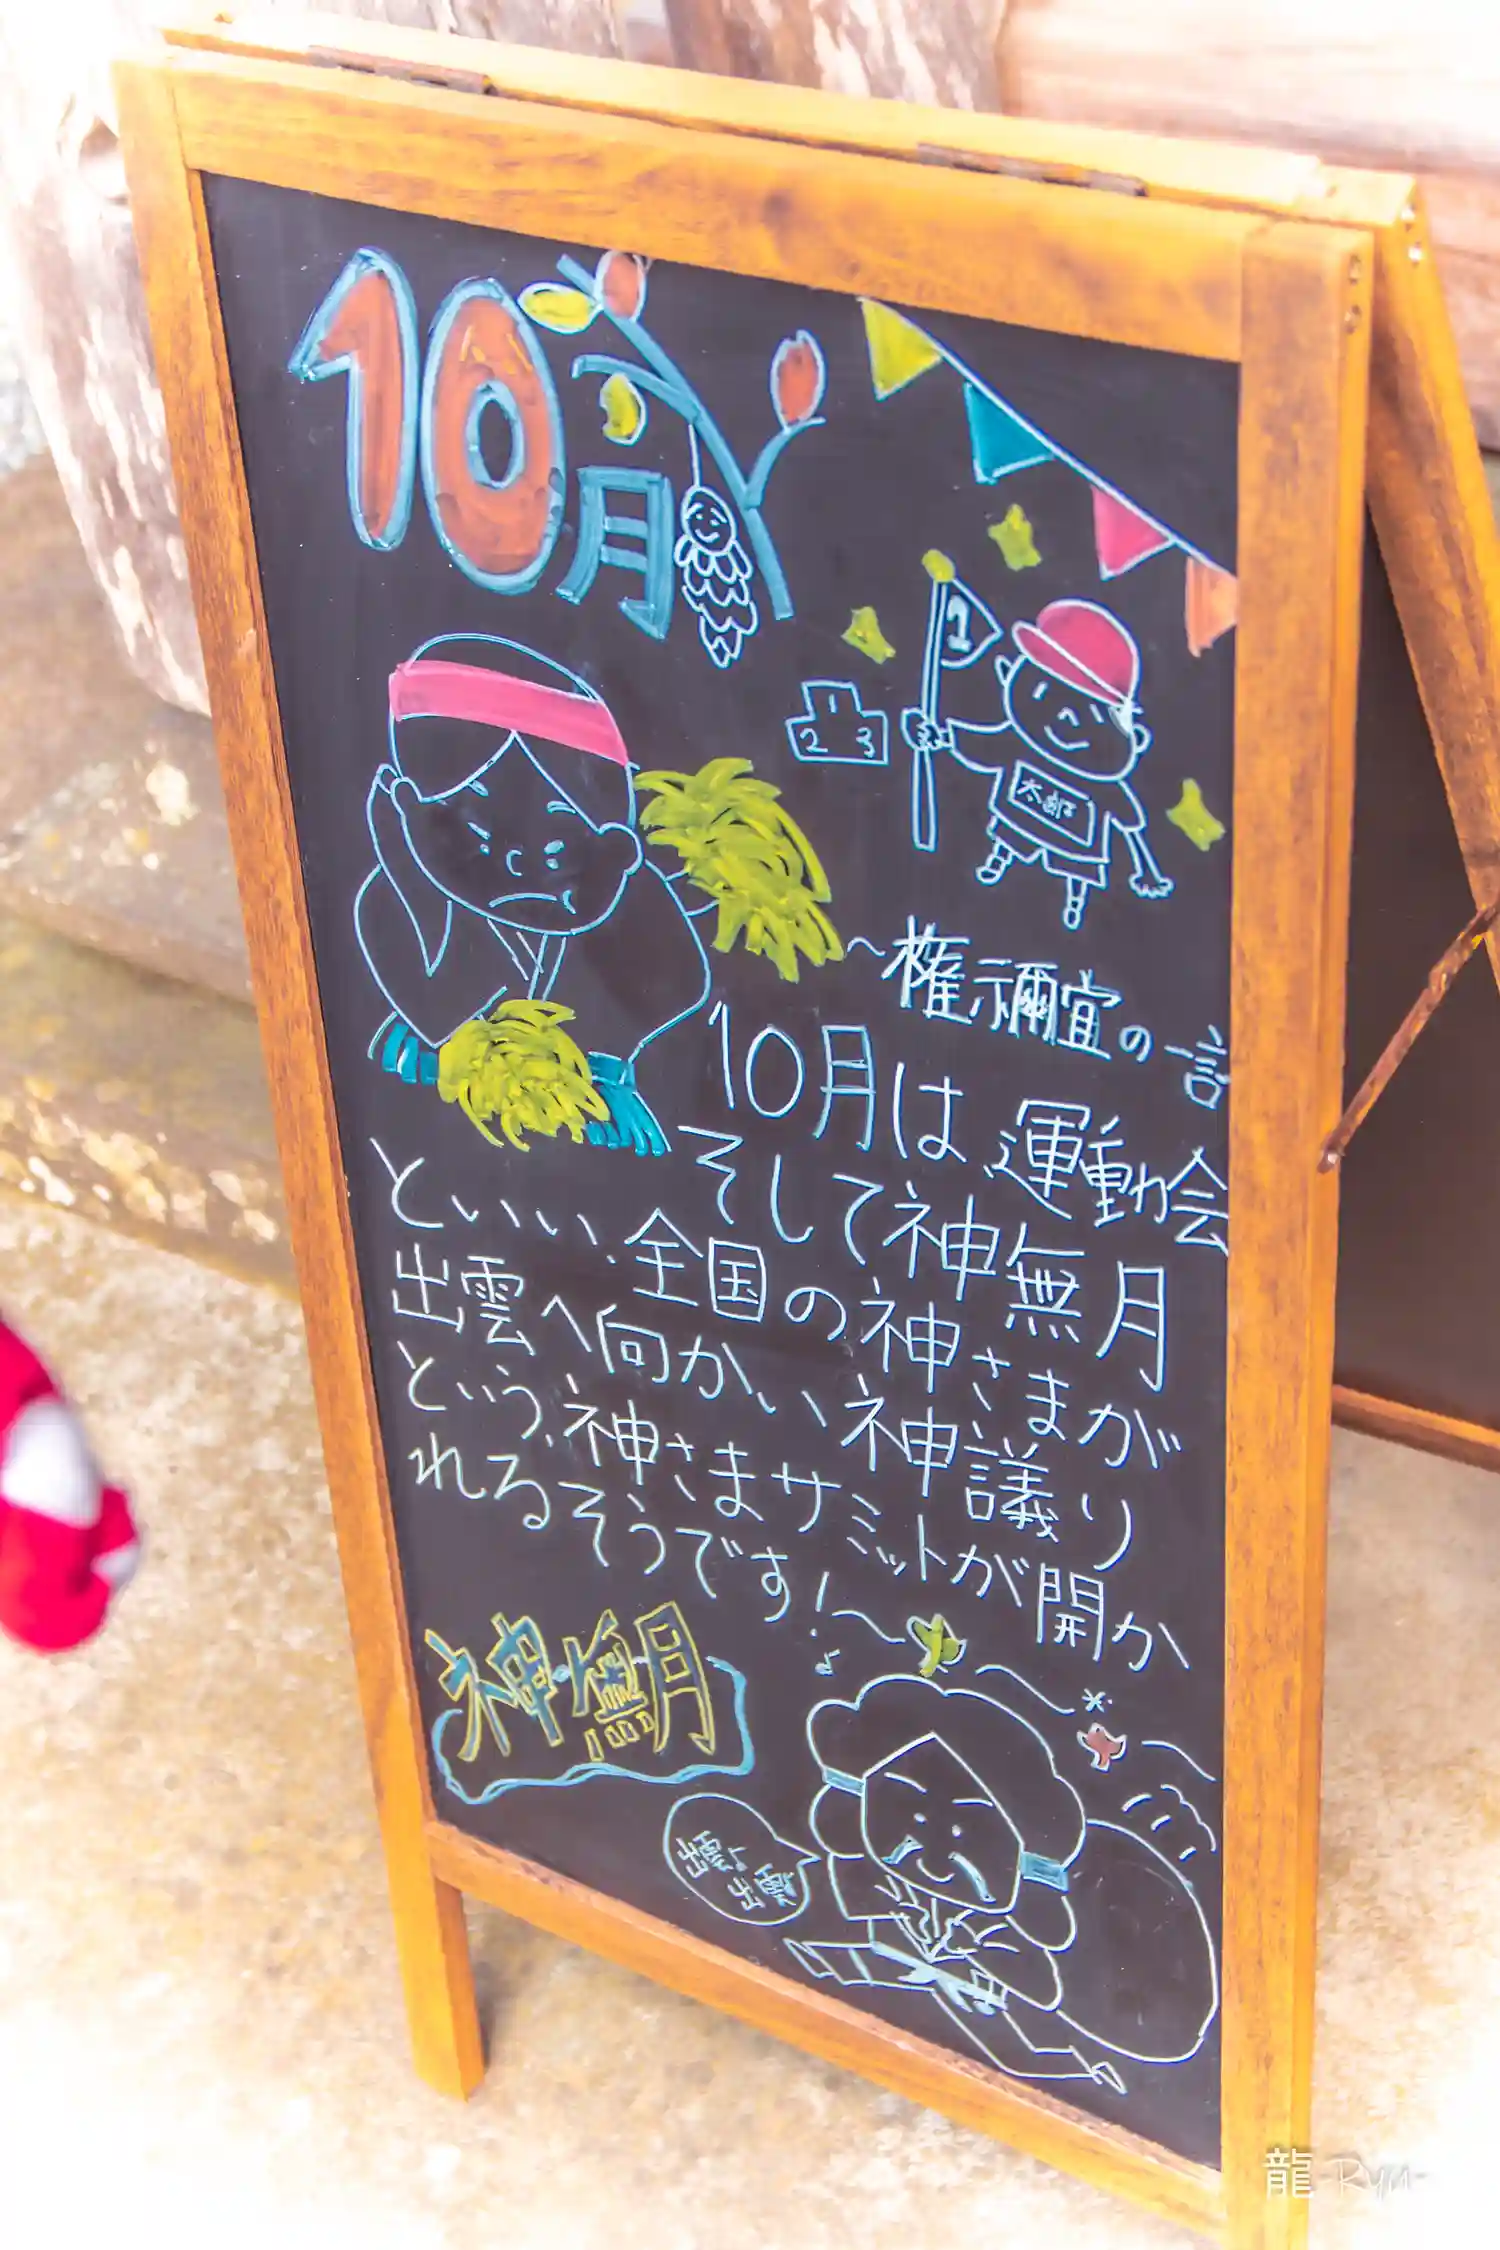 10月
1
1
2 3
太郎
〜権禰宜の言
10月は運動会
そして神無月
といい、全国の神さまが
出雲へ向かい神議り
という、神さまサミットが開か
れるそうです!
神無月
出雲♪
出雲♪
龍 -Ryu-